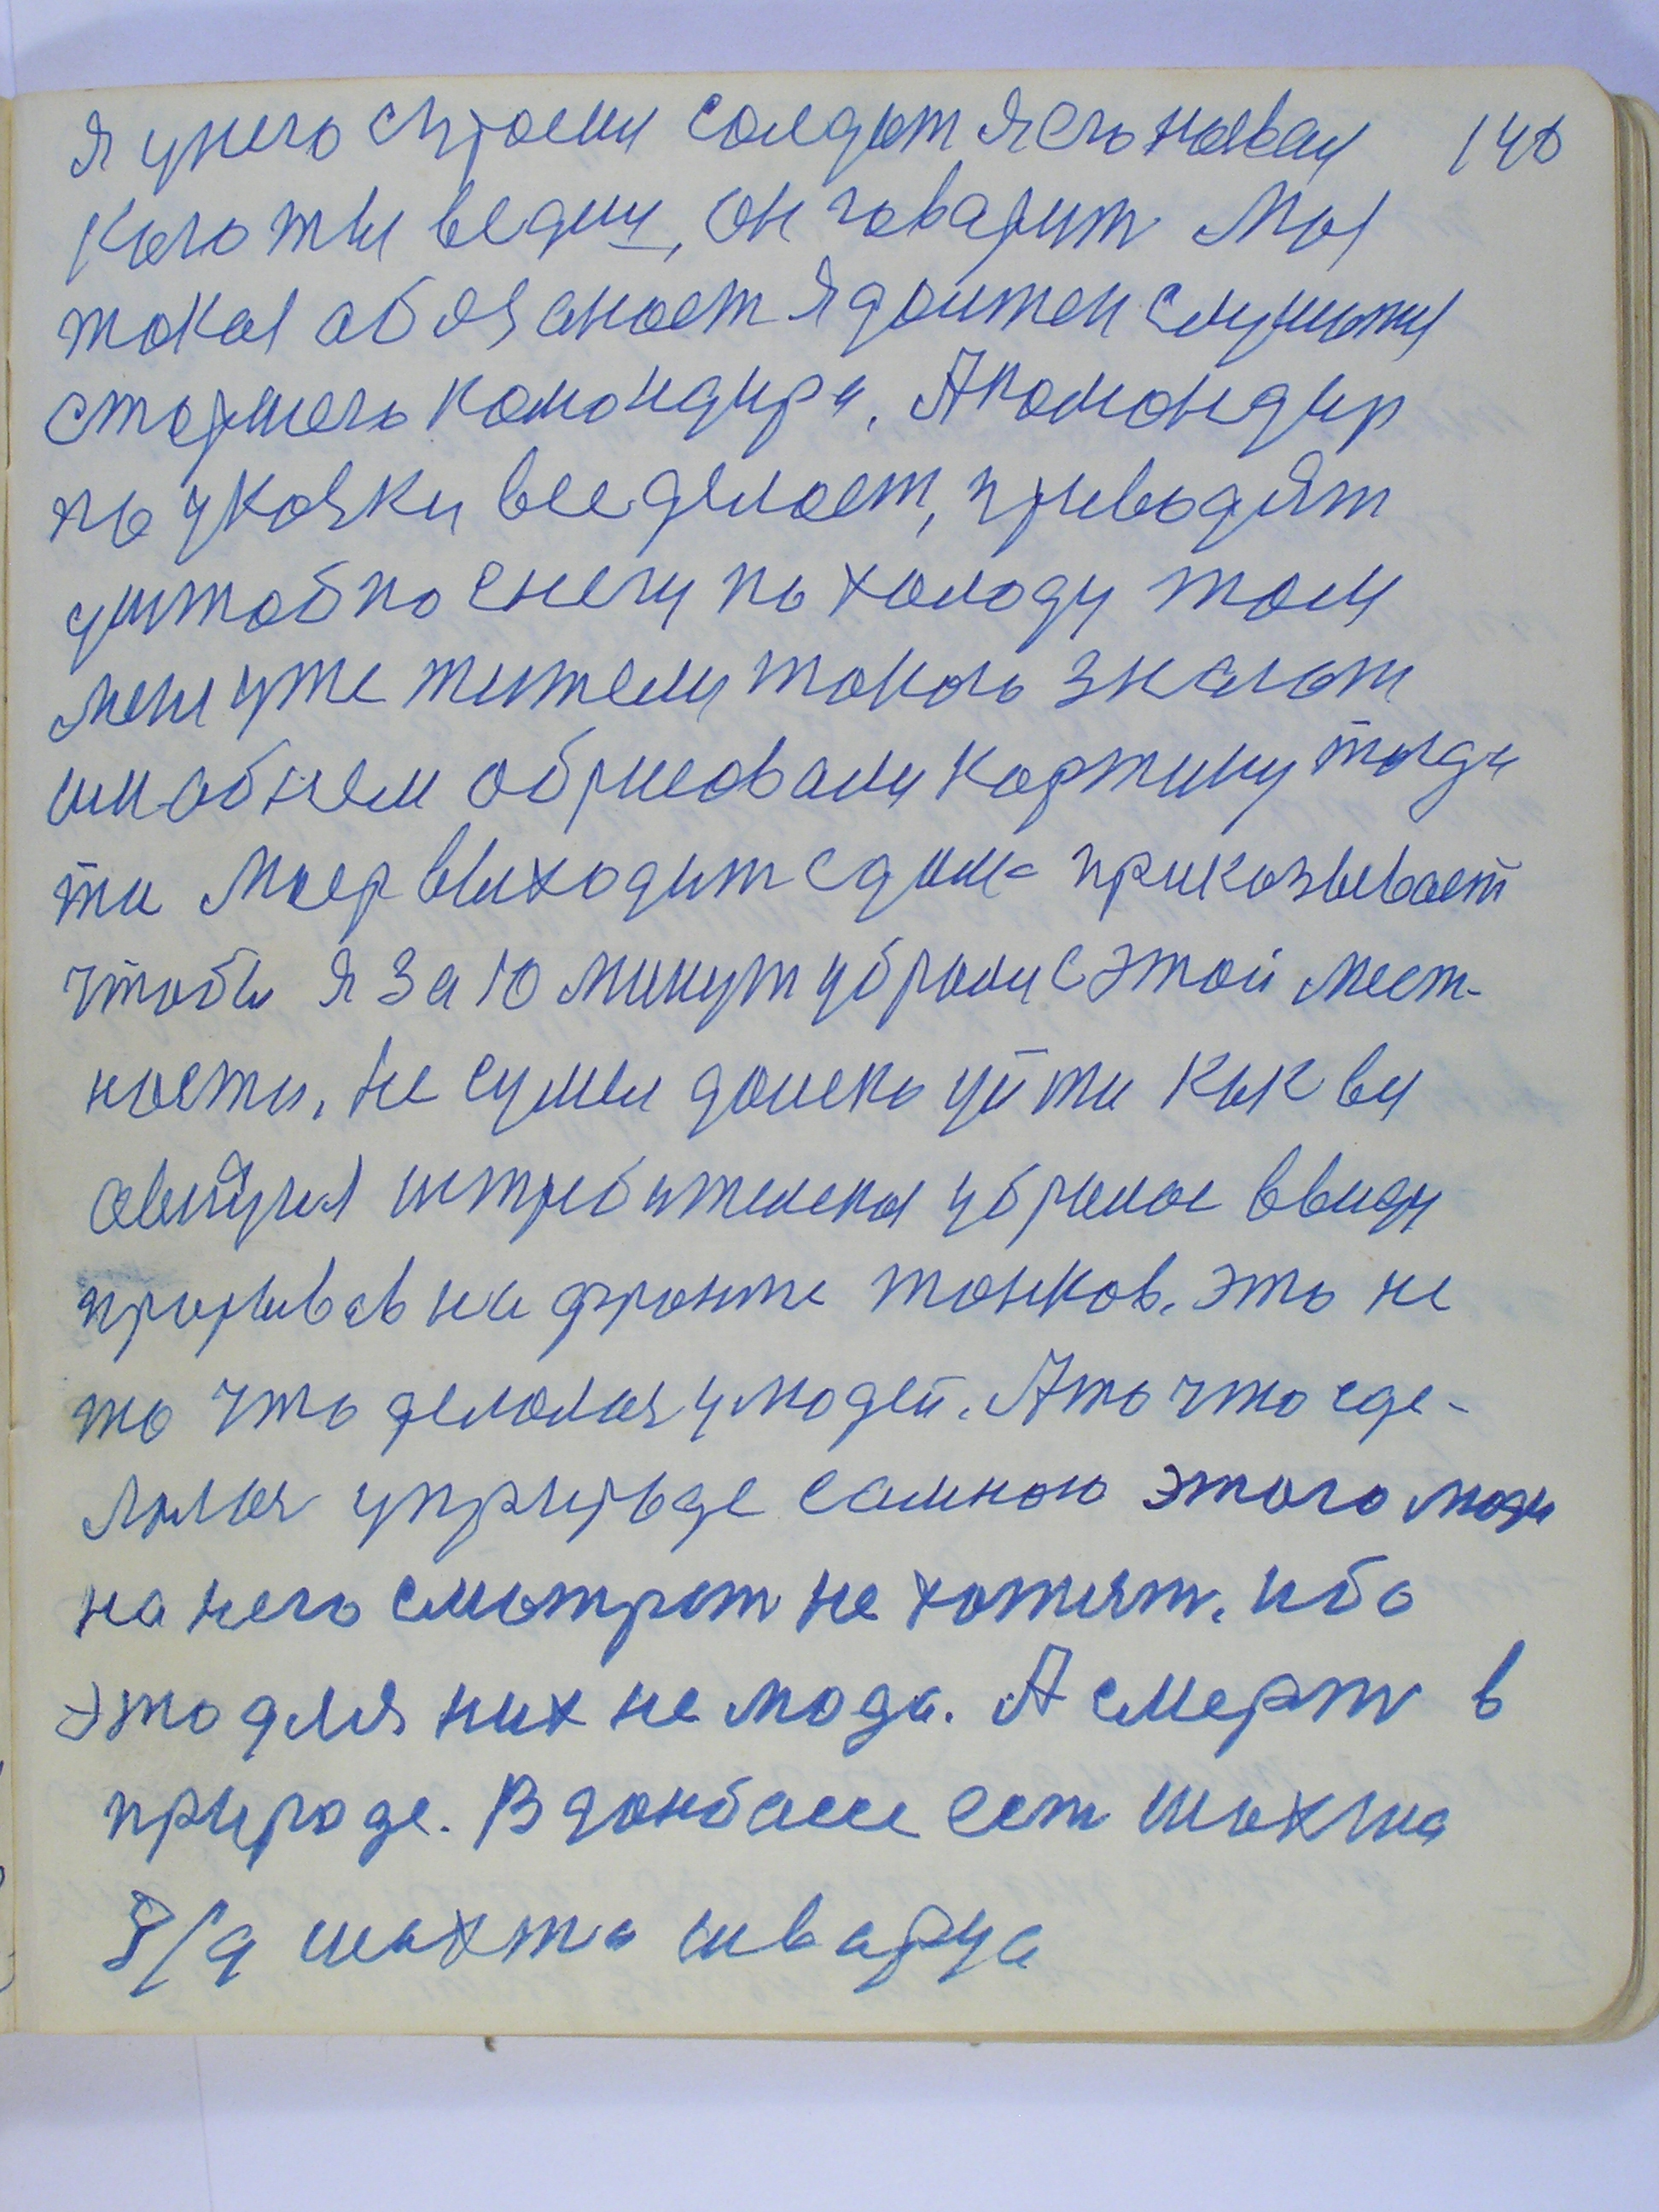 я у него строеш солдат я его назвал 146
Кого ты ведеш, он говарит Моя
такая обязаност я должен слушать
старшего командира, А командир
по указки все делает, приводят
у штаб по снегу по холоду там
меня уже жители такого знают
им об нем обрисовали картину тогда
то Маер выходит с дома приказывает
чтобы я за 10 минут убрался с этой мест-
ности, не сумел далеко уйти как вся
авияция истребителская убралас ввиду
прорывов на фронте танков, это не
то что делалося у людей. А то что сде-
лалося у природе самною этого люди
на него смотрет не хотят, ибо
это для них не мода. А смерт в
природе. В донбассе ест шахта
8/9 шахта шварца